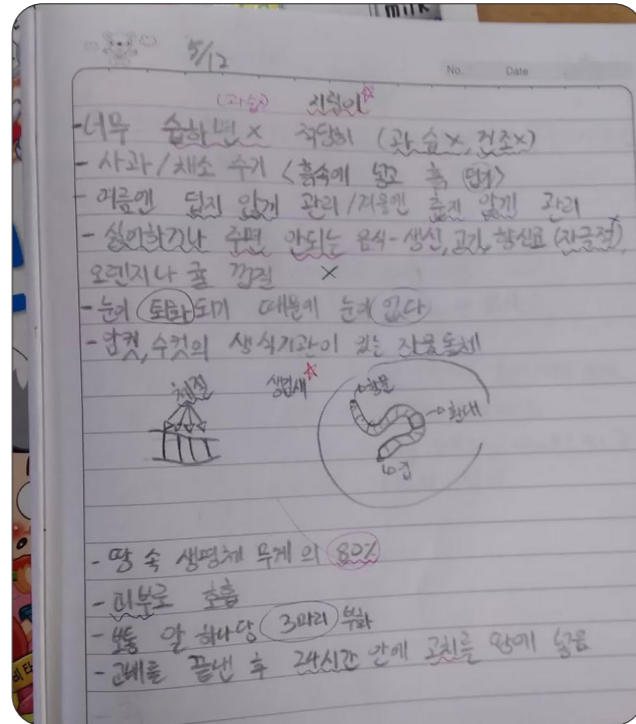 milk
5/12
No. Date
(과습) 지렁이☆
-너무 습하면 × 적당히 (과습×, 건조×)
- 사과/채소 주기 <흙속에 넣고 흙 덮기>
- 여름엔 덥지 않게 관리/겨울엔 춥지 않게 관리
- 싫어하거나 주면 안되는 음식-생선, 고기, 향신료(자극적),
오렌지나 귤 껍질 ×
-눈이 퇴화되기 때문에 눈이 없다
-암컷, 수컷의 생식기관이 있는 자웅동체
체절 생김새☆
항문
환대
입
-땅 속 생명체 무게의 80%
-피부로 호흡
-보통 알 하나당 3마리 부화
-교배를 끝낸 후 24시간 안에 고치를 땅에 낳음
비타